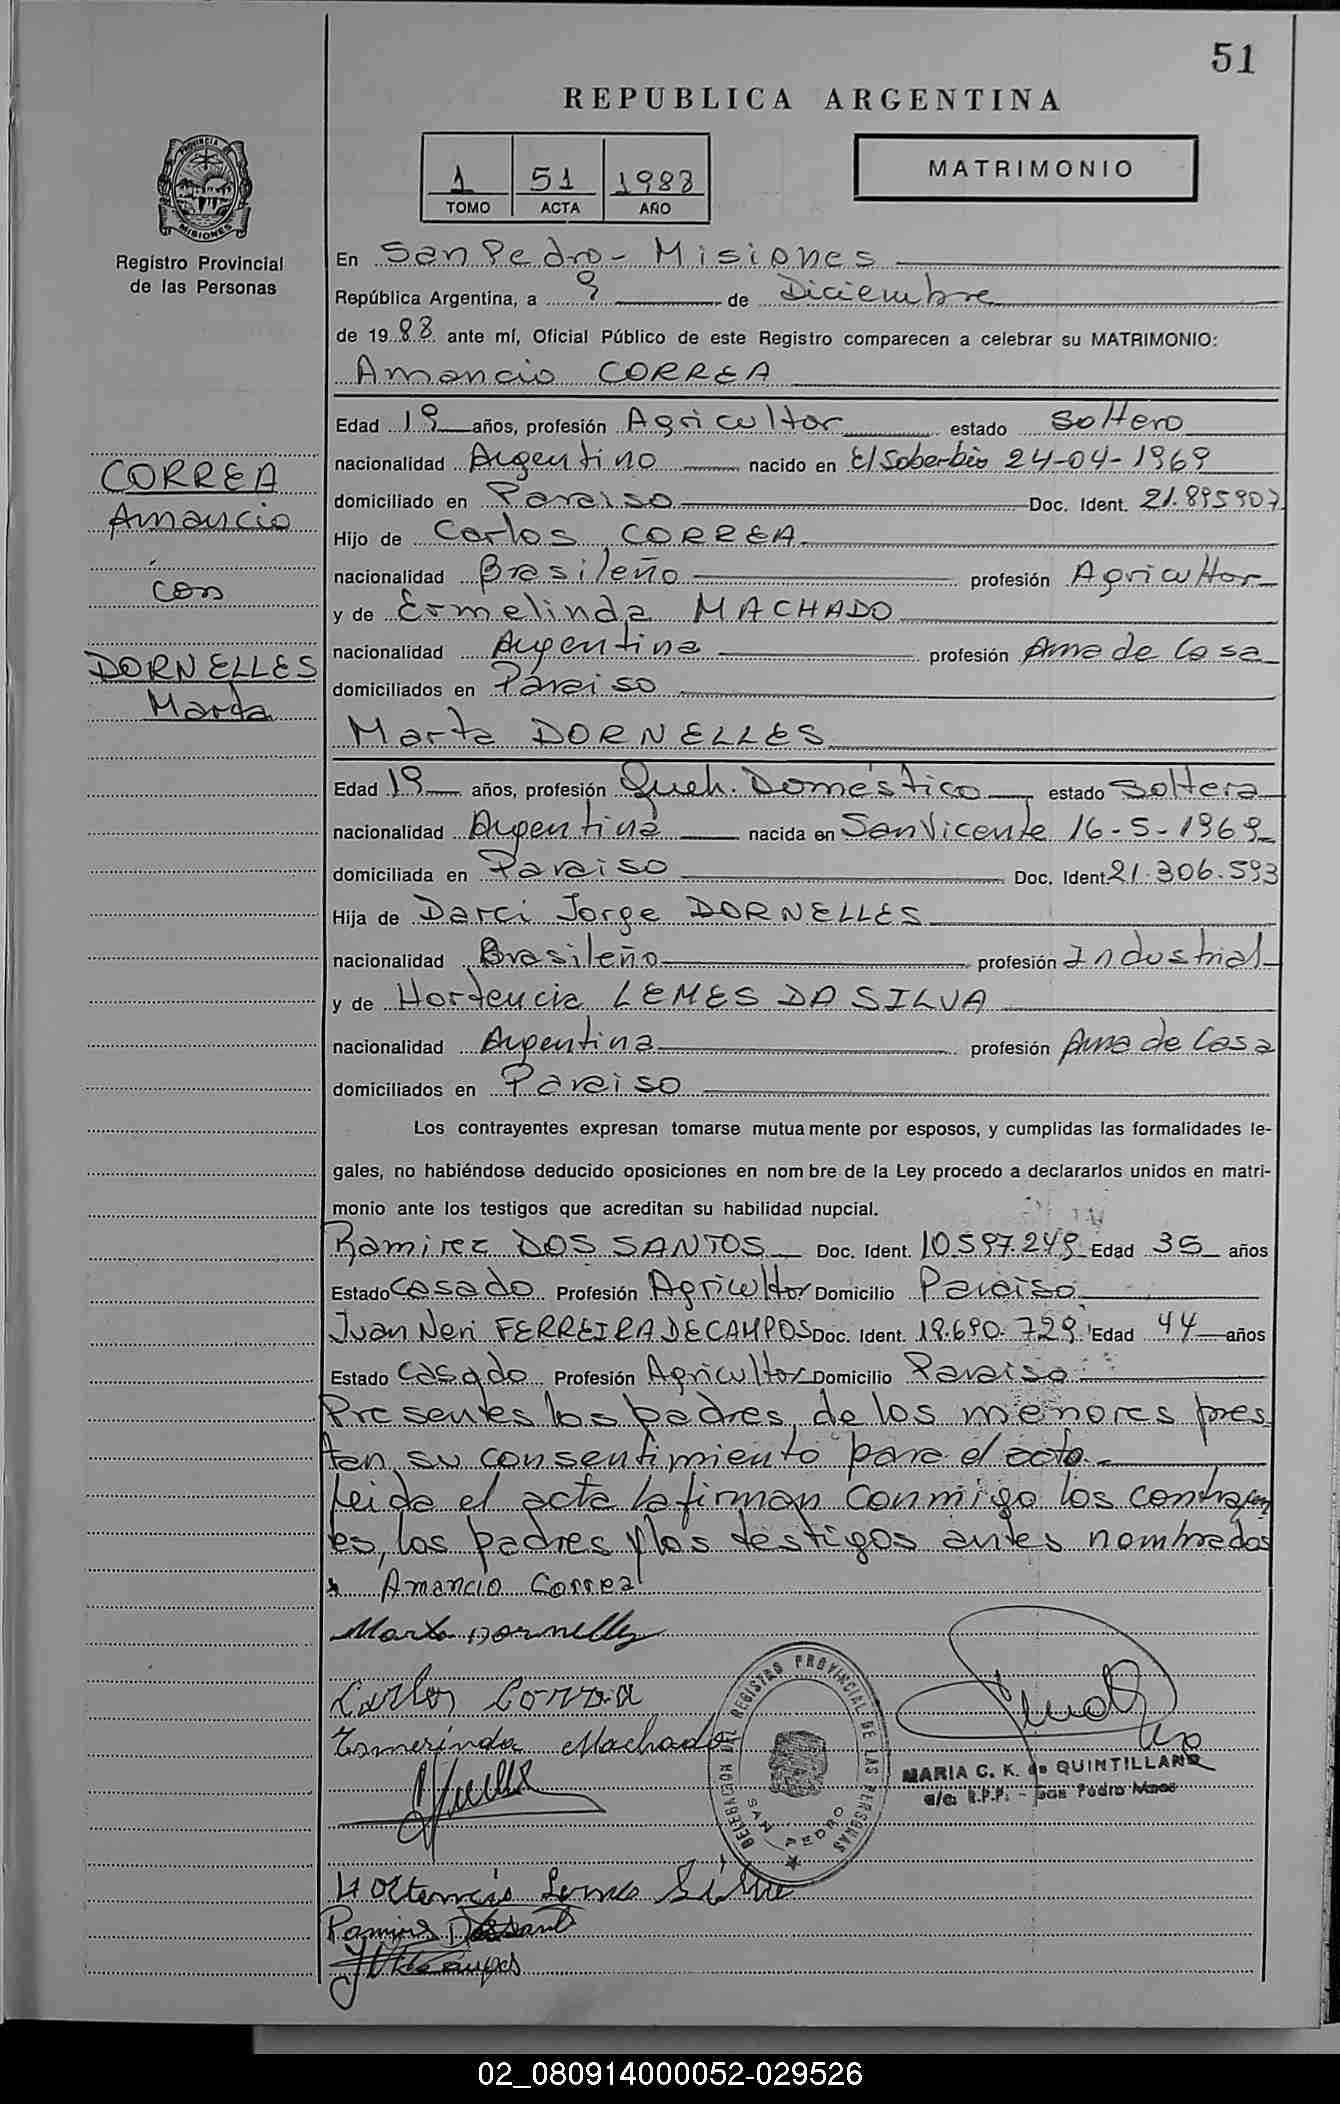 51
REPUBLICA ARGENTINA
1 51 1988
TOMO ACTA AÑO
MATRIMONIO
PROVINCIA DE
MISIONES
Registro Provincial
de las Personas
En San Pedro - Misiones
República Argentina, a 9 de Diciembre
de 19 88 ante mí, Oficial Público de este Registro comparecen a celebrar su MATRIMONIO:
Amancio CORREA
Edad 19 años, profesión Agricultor estado Soltero
nacionalidad Argentino nacido en El Soberbio 24-04-1969
domiciliado en Paraiso Doc. Ident. 21.895907
Hijo de Carlos CORREA
nacionalidad Brasileño profesión Agricultor
y de Ermelinda MACHADO
nacionalidad Argentina profesión Ama de Casa
domiciliados en Paraiso
CORREA
Amancio
con
DORNELLES
Marta
Marta DORNELLES
Edad 19 años, profesión Queh. Doméstico estado Soltera
nacionalidad Argentina nacida en San Vicente 16-5-1969
domiciliada en Paraiso Doc. Ident 21.306.593
Hija de Darci Jorge DORNELLES
nacionalidad Brasileño profesión Industrial
y de Hortencia LEMES DA SILVA
nacionalidad Argentina profesión Ama de Casa
domiciliados en Paraiso
Los contrayentes expresan tomarse mutuamente por esposos, y cumplidas las formalidades le-
gales, no habiéndose deducido oposiciones en nombre de la Ley procedo a declararlos unidos en matri-
monio ante los testigos que acreditan su habilidad nupcial.
Ramirez DOS SANTOS Doc. Ident. 10.597.249 Edad 36 años
Estado Casado Profesión Agricultor Domicilio Paraiso
Juan Neri FERREIRA DE CAMPOS Doc. Ident. 18.690.729 Edad 44 años
Estado Casado Profesión Agricultor Domicilio Paraiso
Presentes los padres de los menores pres
tan su consentimiento para el acto.-
Leida el acta la firman conmigo los contrayen
es, los padres y los testigos antes nombrados
Amancio Correa
Marta Dornelles
Carlos Correa
Esmerinda Machado
DELEGACION DEL REGISTRO PROVINCIAL DE LAS PERSONAS
SAN PEDRO
MARIA C. K. de QUINTILLAN
a/c. R.P.P. - San Pedro Mnes
Hortencia Lemes Silva
Ramires Dossant
02_080914000052-029526